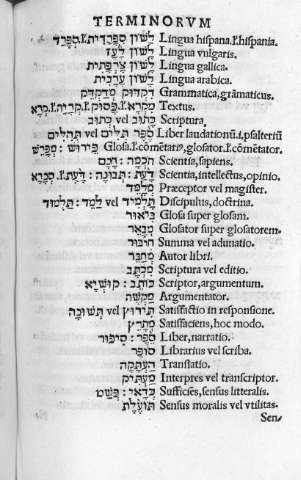 TERMINORVM
לְשׁוֹן סְפָרַדִּית.ł.סְפָרַד Lingua hispana.ł.hispania.
לְשׁוֹן לַעַז Lingua vulgaris.
לְשׁוֹן צָרְפָתִית Lingua gallica.
לְשׁוֹן עַרְבִית Lingua arabica.
דִּקְדּוּק מְדַקְדֵּק Grammatica, grāmaticus.
מִקְרָא.ł.פָּסוּק.ł.קְרִיָּה.ł.קְרָא Textus.
כְּתוּב vel כָּתוּב Scriptura,
סֵפֶר תִּלִּים vel תְּהִלִּים Liber laudationū.i.psalteriū
פֵּירוּשׁ: מְפָרֵשׁ Glosa.ł.cōmētariꝰ, glosator.ł.cōmētator.
חָכְמָה: חָכָם Scientia, sapiens.
דַּעַת: תְּבוּנָה: דֵּעָה.ł.סְבָרָא Scientia, intellectus, opinio.
מְלַמֵּד Præceptor vel magister.
תַּלְמִיד vel לָמֵד: תַּלְמוּד Discipulus, doctrina.
בֵּאוּר Glosa super glosam.
מְבָאֵר Glosator super glosatorem.
חִיבּוּר Summa vel adunatio.
מְחַבֵּר Autor libri.
מִכְתָּב Scriptura vel editio.
כּוֹתֵב: קוּשְׁיָא Scriptor, argumentum.
מַקְשֶׁה Argumentator.
תֵּירוּץ vel תְּשׁוּבָה Satisfactio in responsione.
מְתָרֵץ Satisfaciens, hoc modo.
סֵפֶר: סִיפּוּר Liber, narratio.
סוֹפֵר Librarius vel scriba.
הַעְתָּקָה Translatio.
מַעְתִּיק Interpres vel transcriptor.
כְּדַאי: פְּשָׁט Sufficiēs, sensus litteralis.
תּוֹעֶלֶת Sensus moralis vel vtilitas.
Sen-